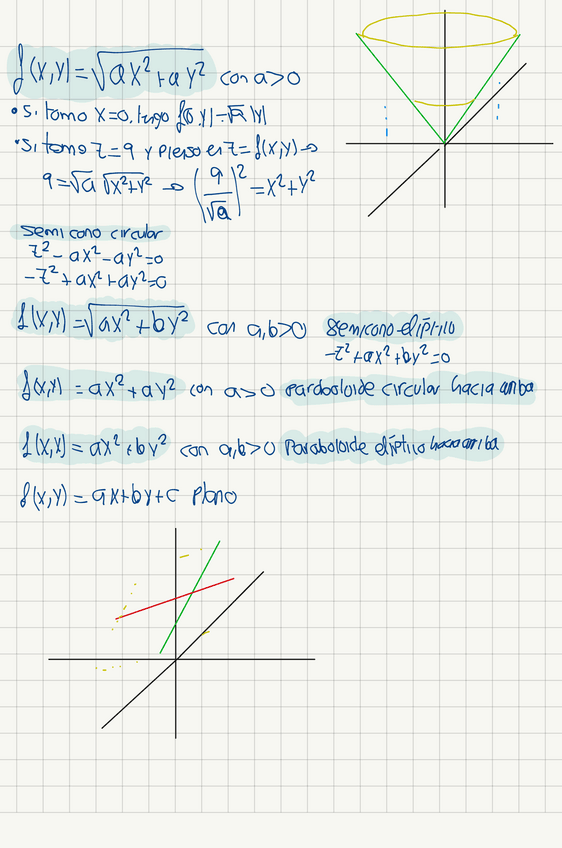 f(x,y)=√(ax²+ay²) con a>0
• Si tomo x=0, tengo f(0,y)=√a |y|
• Si tomo z=9 y pienso en z=f(x,y) →
9=√a √(x²+y²) → (9/√a)² = x²+y²
semicono circular
z²-ax²-ay²=0
-z²+ax²+ay²=0
f(x,y)=√(ax²+by²) con a,b>0 semicono elíptico
-z²+ax²+by²=0
f(x,y)=ax²+ay² con a>0 Paraboloide circular hacia arriba
f(x,y)=ax²+by² con a,b>0 Paraboloide elíptico hacia arriba
f(x,y)=ax+by+c Plano